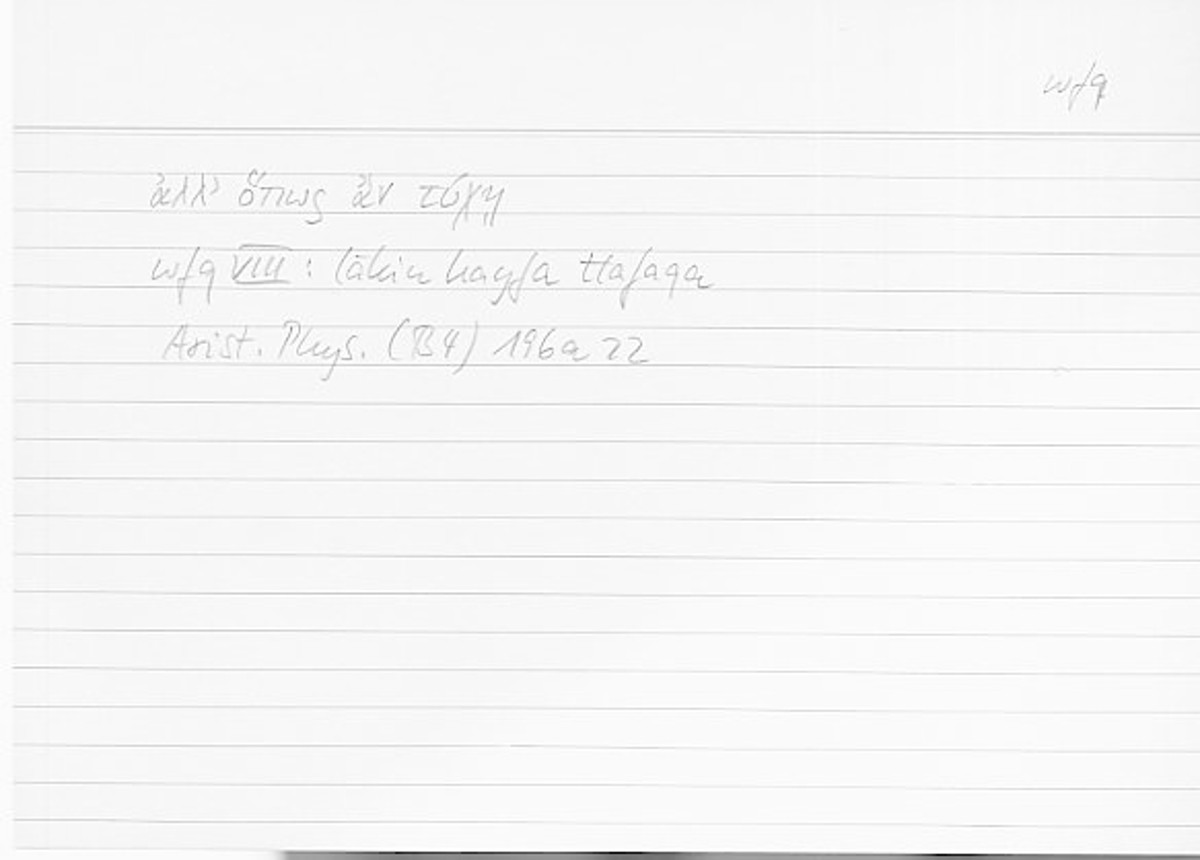 wfq
ἀλλ' ὅπως ἂν τύχῃ
wfq VIII : lākin kayfa ttafaqa
Arist. Phys. (B4) 196a22